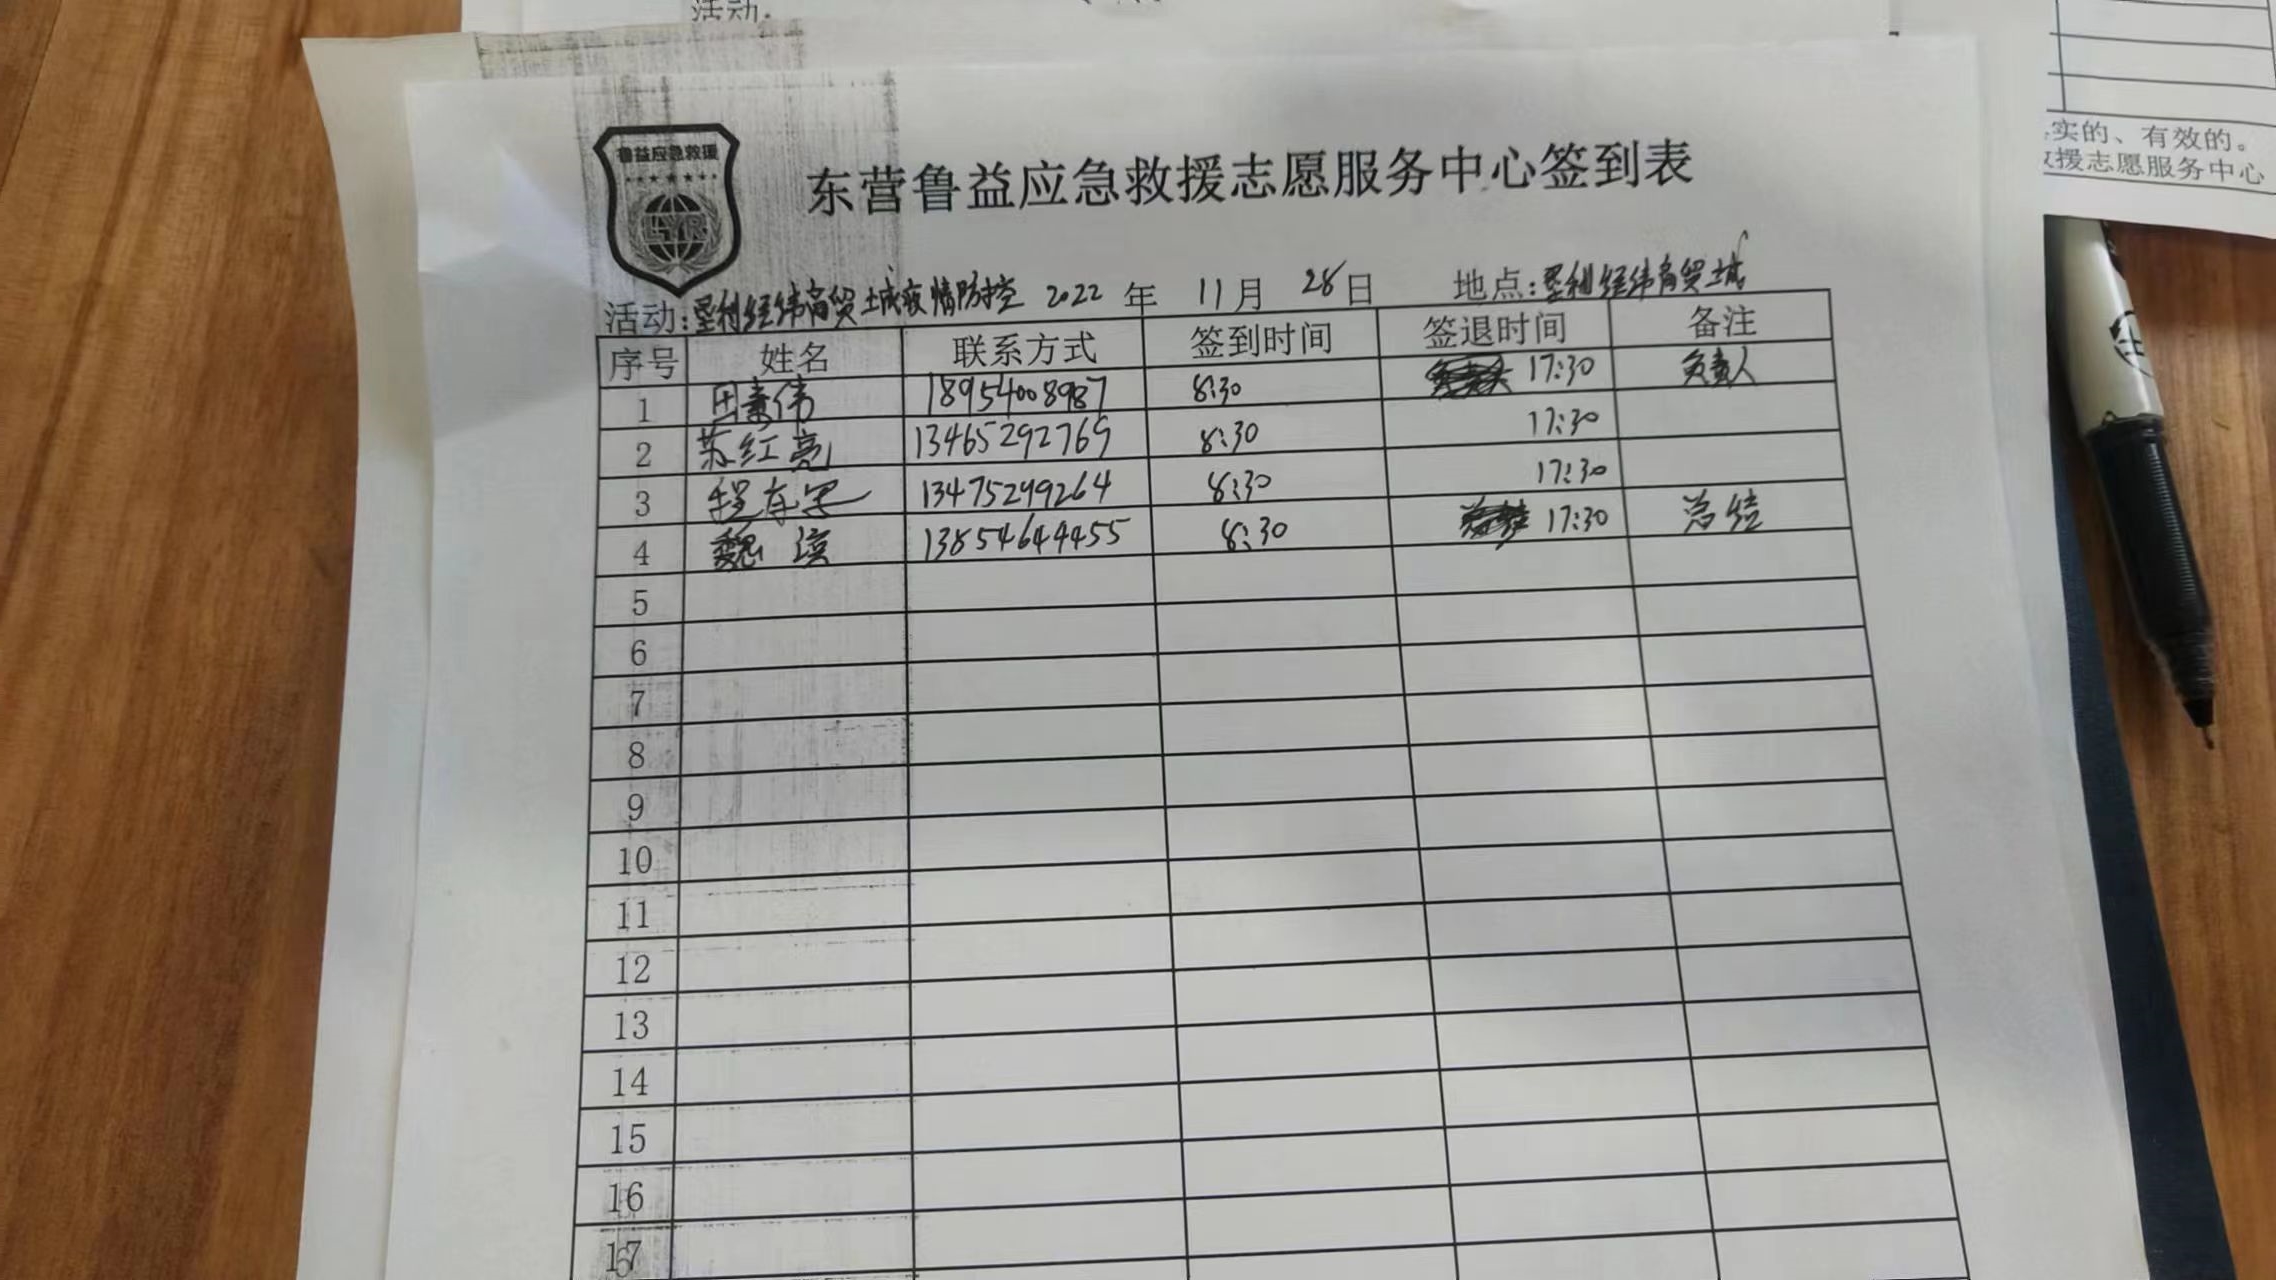 活动.
实的、有效的。
救援志愿服务中心
鲁益应急救援
LYR
东营鲁益应急救援志愿服务中心签到表
活动:垦利经纬商贸城疫情防控 2022 年 11月 28日 地点:垦利经纬商贸城
序号 姓名 联系方式 签到时间 签退时间 备注
1 田素伟 18954008987 8:30 17:30 负责人
2 苏红亮 13465292769 8:30 17:30
3 程 13475299264 8:30 17:30
4 魏滨 13854644455 8:30 17:30 总结
5
6
7
8
9
10
11
12
13
14
15
16
17